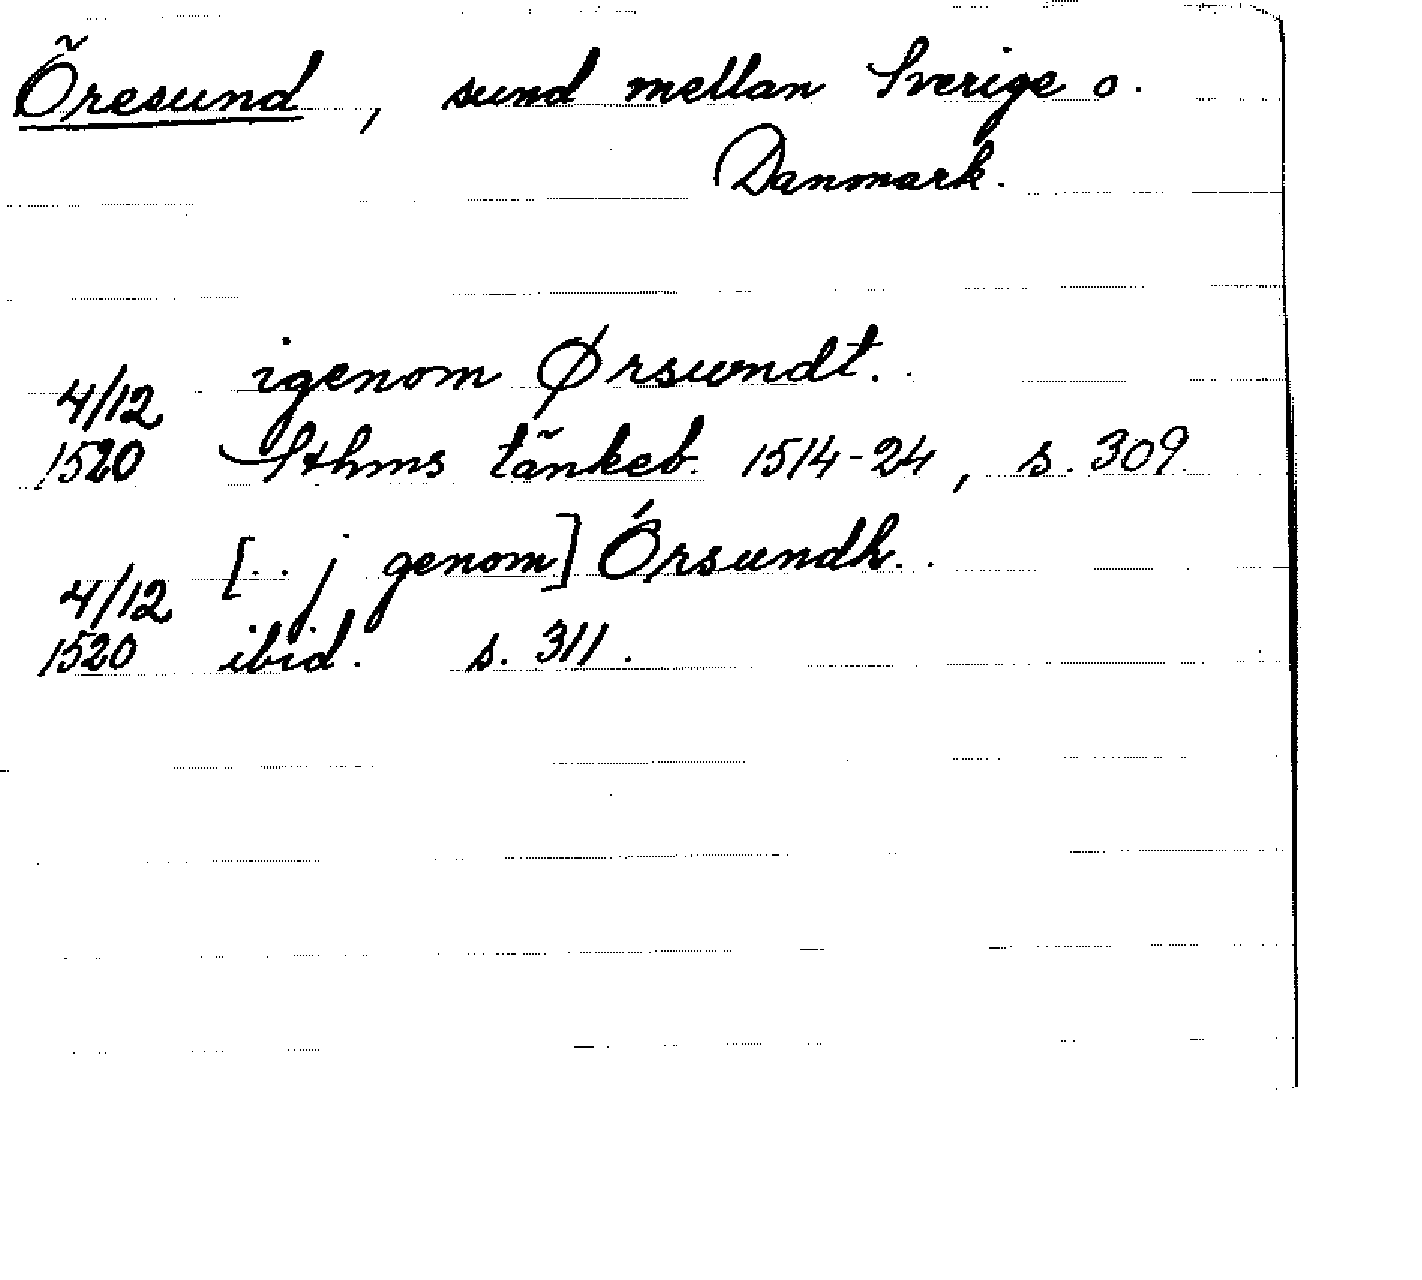 Öresund, sund mellan Sverige o.
Danmark.
4/12 igenom Ørswndt..
1520 Sthms tänkeb. 1514-24, s. 309
4/12 [.. j genom] Órsundh..
1520 ibid. s. 311.